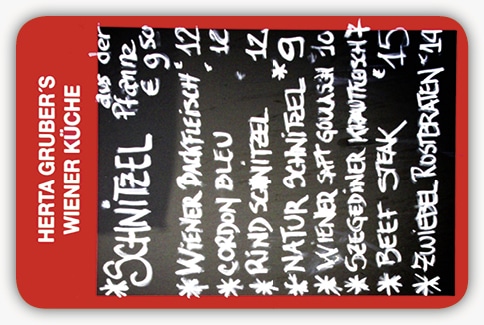 HERTA GRUBER'S
WIENER KÜCHE
*SCHNITZEL aus der Pfanne € 9 50
*WIENER BACKFLEISCH € 12
*CORDON BLEU 12
*RIND SCHNITZEL 12
*NATUR SCHNITZEL *9
*WIENER SAFT GULASCH 10
*SZEGEDINER KRAUTFLEISCH 7
*BEEF STEAK € 15
*ZWIEBEL ROSTBRATEN € 14